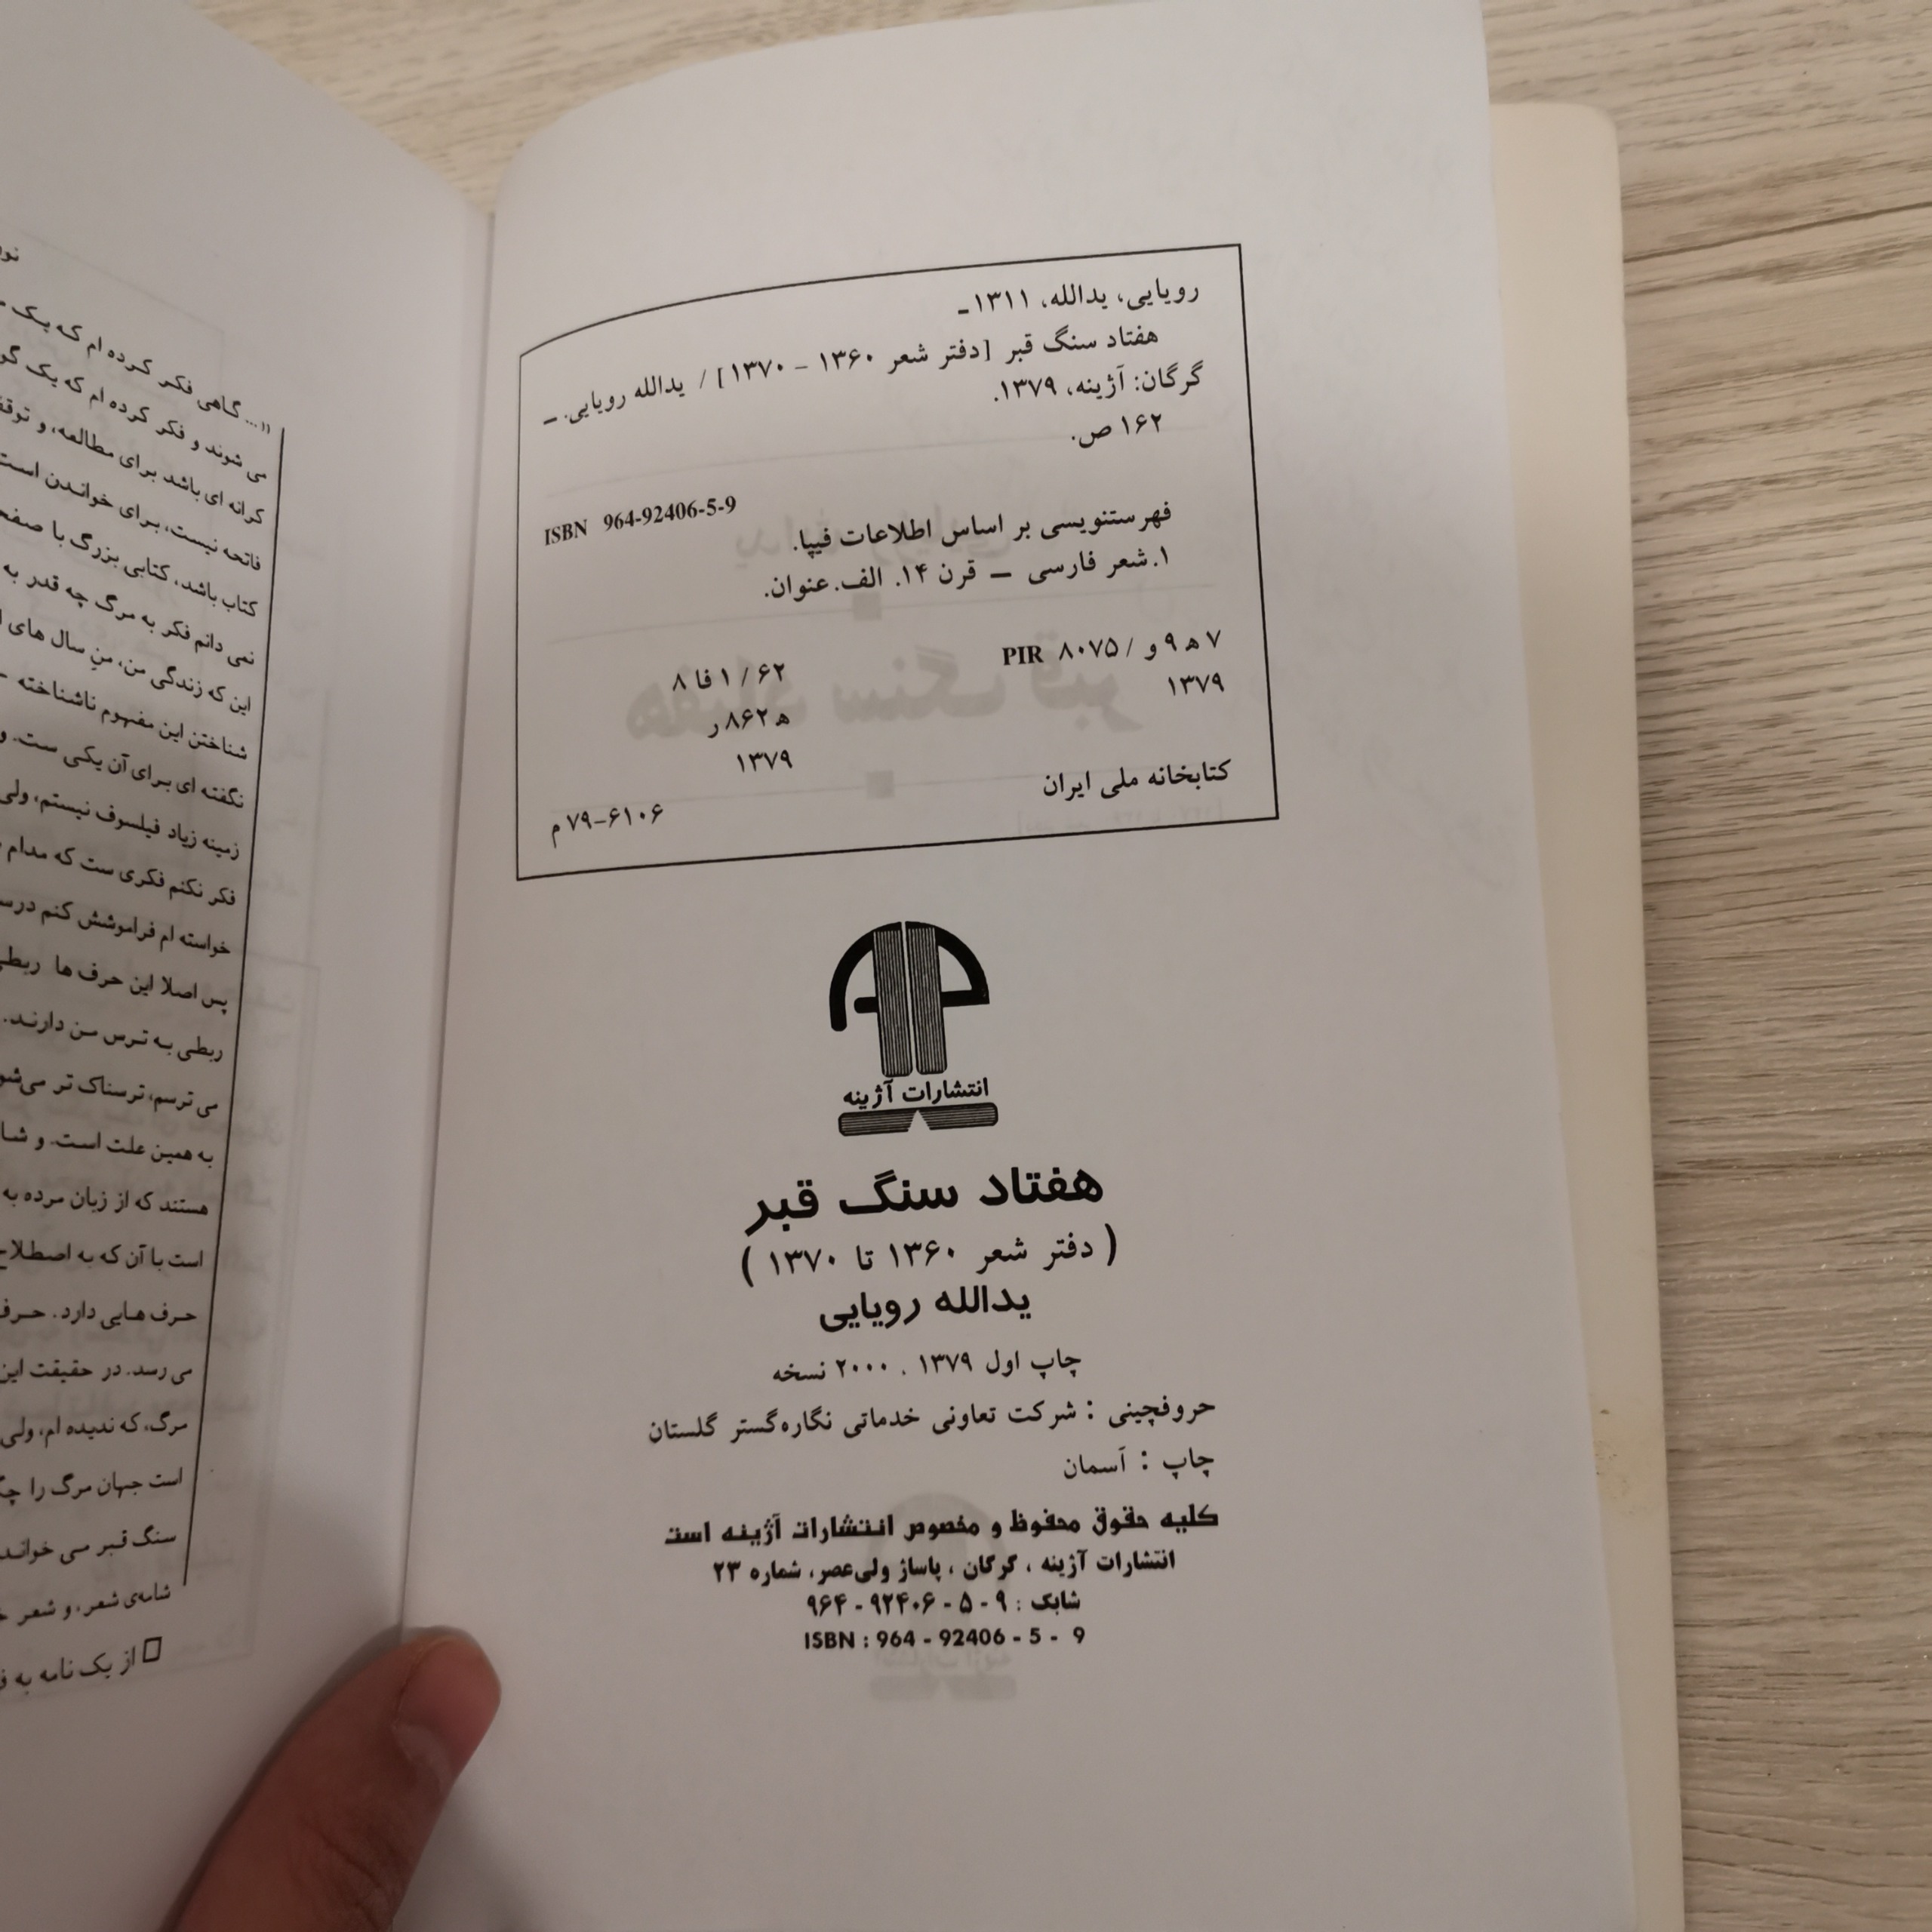 رویایی، یدالله، ۱۳۱۱ـ
هفتاد سنگ قبر [دفتر شعر ۱۳۶۰ – ۱۳۷۰] / یدالله رویایی. ـ
گرگان: آژینه، ۱۳۷۹.
۱۶۲ ص.
ISBN 964-92406-5-9
فهرستنویسی بر اساس اطلاعات فیپا.
۱.شعر فارسی – قرن ۱۴. الف.عنوان.
۷ ه ۹ و / PIR ۸۰۷۵
۶۲ / ۱ فا ۸
۱۳۷۹
ه ۸۶۲ ر
۱۳۷۹
کتابخانه ملی ایران
۷۹-۶۱۰۶ م
انتشارات آژینه
هفتاد سنگ قبر
( دفتر شعر ۱۳۶۰ تا ۱۳۷۰ )
یدالله رویایی
چاپ اول ۱۳۷۹ . ۲۰۰۰ نسخه
حروفچینی : شرکت تعاونی خدماتی نگاره‌گستر گلستان
چاپ : آسمان
کلیه حقوق محفوظ و مخصوص انتشارات آژینه است
انتشارات آژینه ، گرگان ، پاساژ ولی‌عصر، شماره ۲۳
شابک : ۹ - ۵ - ۹۲۴۰۶ - ۹۶۴
ISBN : 964 - 92406 - 5 - 9
«... گاهی فکر کرده ام که یک
می شوند و فکر کرده ام که یک
کرانه ای باشد برای مطالعه، و
فاتحه نیست، برای خواندن است
کتاب باشد، کتابی بزرگ با
نمی دانم فکر به مرگ چه قدر به
این که زندگی من، منِ سال های
شناختن این مفهوم ناشناخته -
نگفته ای برای آن یکی ست. و
زمینه زیاد فیلسوف نیستم، ولی
فکر نکنم فکری ست که مدام
خواسته ام فراموشش کنم
پس اصلا این حرف ها
ربطی به ترس من دارند.
می ترسم، ترسناک تر
به همین علت است. و
هستند که از زبان مرده به
است با آن که به
حرف هایی دارد.
می رسد. در حقیقت این
مرگ، که ندیده ام، ولی
است جهان مرگ را
سنگ قبر می
شامه‌ی شعر، و شعر
□ از یک نامه به